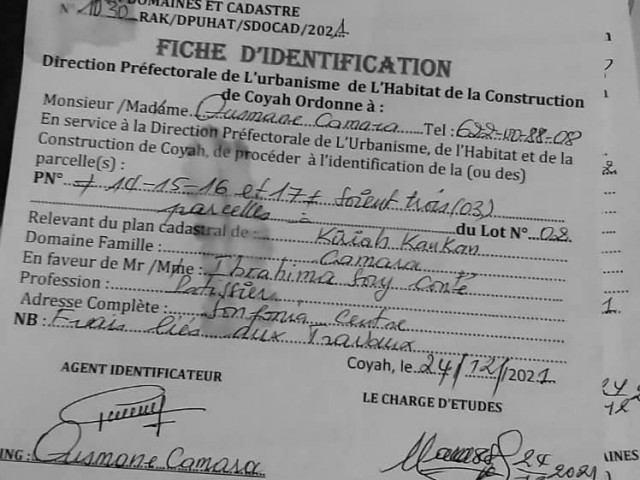 DOMAINES ET CADASTRE
N° 1030 RAK/DPUHAT/SDOCAD/2021
FICHE D'IDENTIFICATION
Direction Préfectorale de L'urbanisme de L'Habitat de la Construction
de Coyah Ordonne à :
Monsieur /Madame Ousmane Camara Tel : 622-10-88-08
En service à la Direction Préfectorale de L'Urbanisme, de l'Habitat et de la
Construction de Coyah, de procéder à l'identification de la (ou des)
parcelle(s) :
PN° 14-15-16 et 17 soient trois (03)
parcelles du Lot N° 02
Relevant du plan cadastral de : Kaiah Kankan
Domaine Famille : Camara
En faveur de Mr /Mme : Ibrahima Sory Conté
Profession : Patissier
Adresse Complète : Sonfonia Centre
NB : Frais liés aux Travaux
Coyah, le 24/12/2021
AGENT IDENTIFICATEUR
LE CHARGE D'ETUDES
ING : Ousmane Camara
24
2021